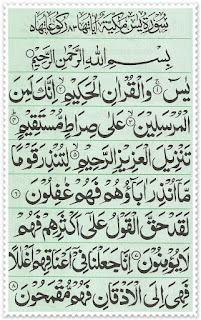 سورة يس مكية
بسم الله الرحمن الرحيم
يس ۝١ والقران الحكيم ۝٢ انك لمن
المرسلين ۝٣ على صراط مستقيم ۝٤
تنزيل العزيز الرحيم ۝٥ لتنذر قوما
ما انذر اباؤهم فهم غفلون ۝٦
لقد حق القول على اكثرهم فهم
لا يؤمنون ۝٧ انا جعلنا في اعناقهم اغللا
فهي الى الاذقان فهم مقمحون ۝٨